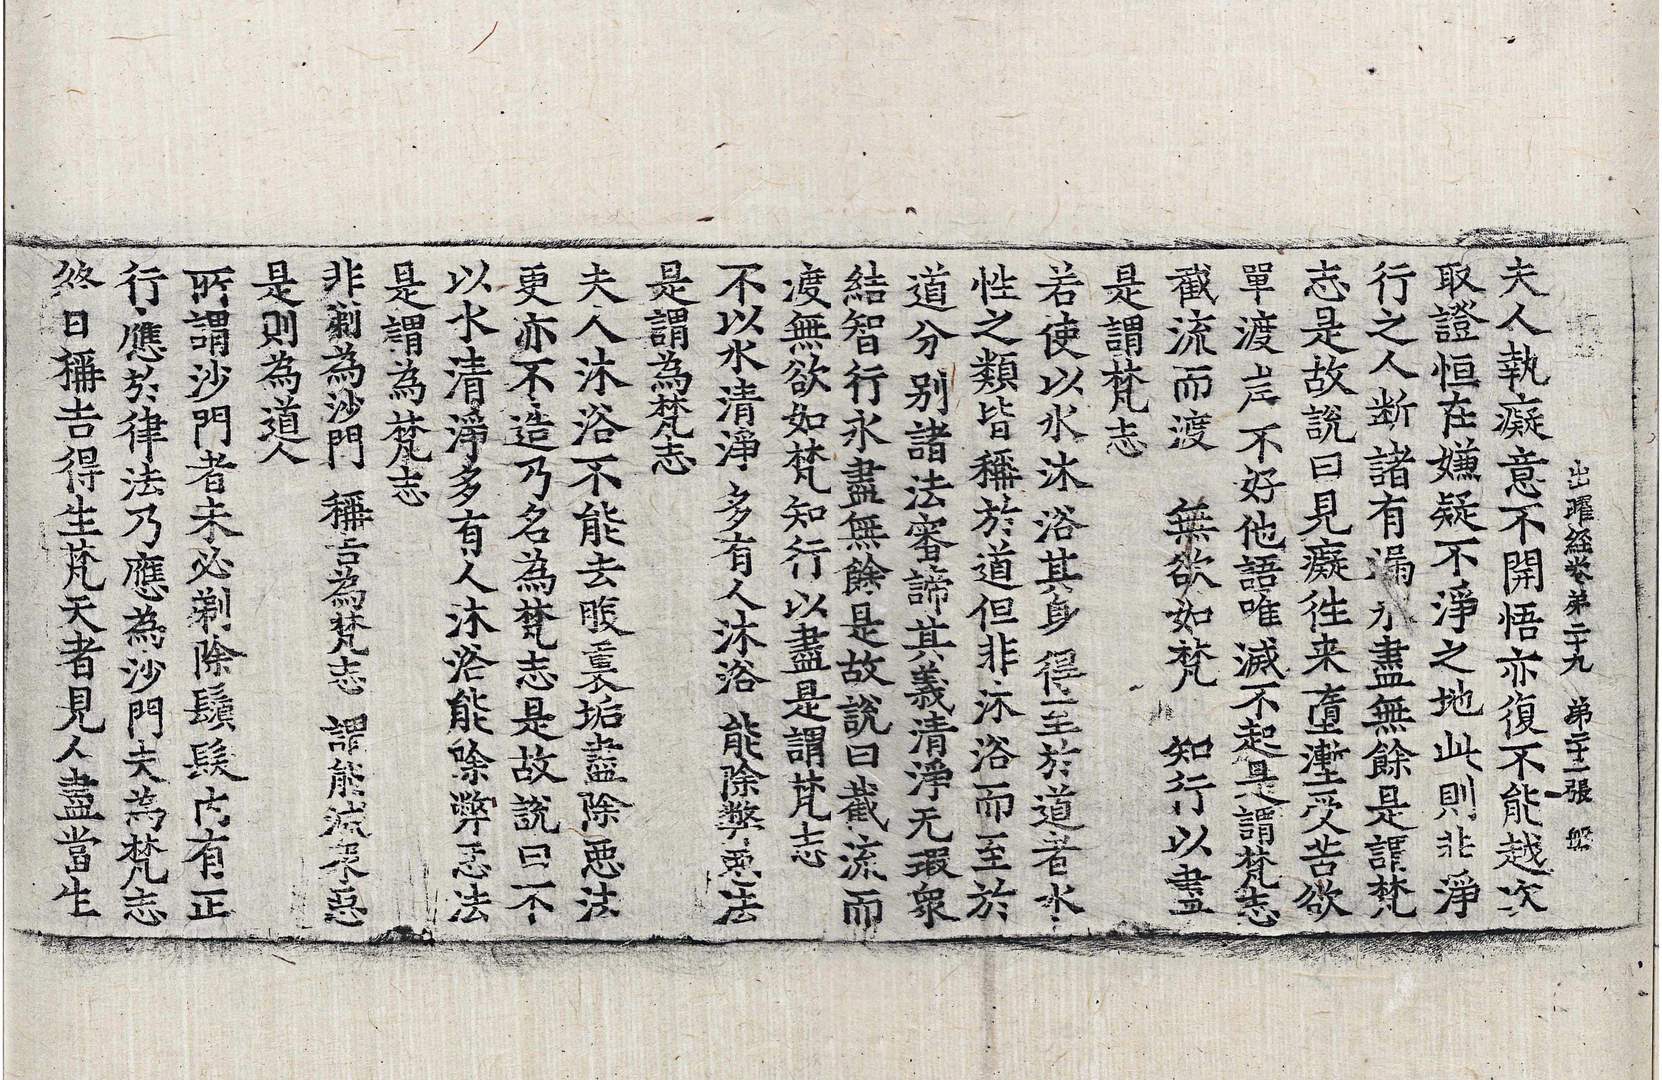 出曜経卷第二十九 第二十二張 盤
夫人執癡意不開悟亦復不能越次
取證恒在嫌疑不淨之地此則非淨
行之人断諸有漏永盡無餘是謂梵
志是故說曰見癡往来墮塹受苦欲
單渡岸不好他語唯滅不起是謂梵志
截流而渡 無欲如梵 知行以盡
是謂梵志
若使以水沐浴其身得至於道者水
性之類皆稱於道但非沐浴而至於
道分別諸法審諦其義清淨无瑕衆
結智行永盡無餘是故說曰截流而
渡無欲如梵知行以盡是謂梵志
不以水清淨 多有人沐浴 能除弊惡法
是謂為梵志
夫人沐浴不能去腹裏垢盡除惡法
更亦不造乃名為梵志是故說曰不
以水清淨多有人沐浴能除弊惡法
是謂為梵志
非剃為沙門 稱吉為梵志 謂能滅衆惡
是則為道人
所謂沙門者未必剃除鬚髮内有正
行應於律法乃應為沙門夫為梵志
終日稱吉得生梵天者見人盡當生